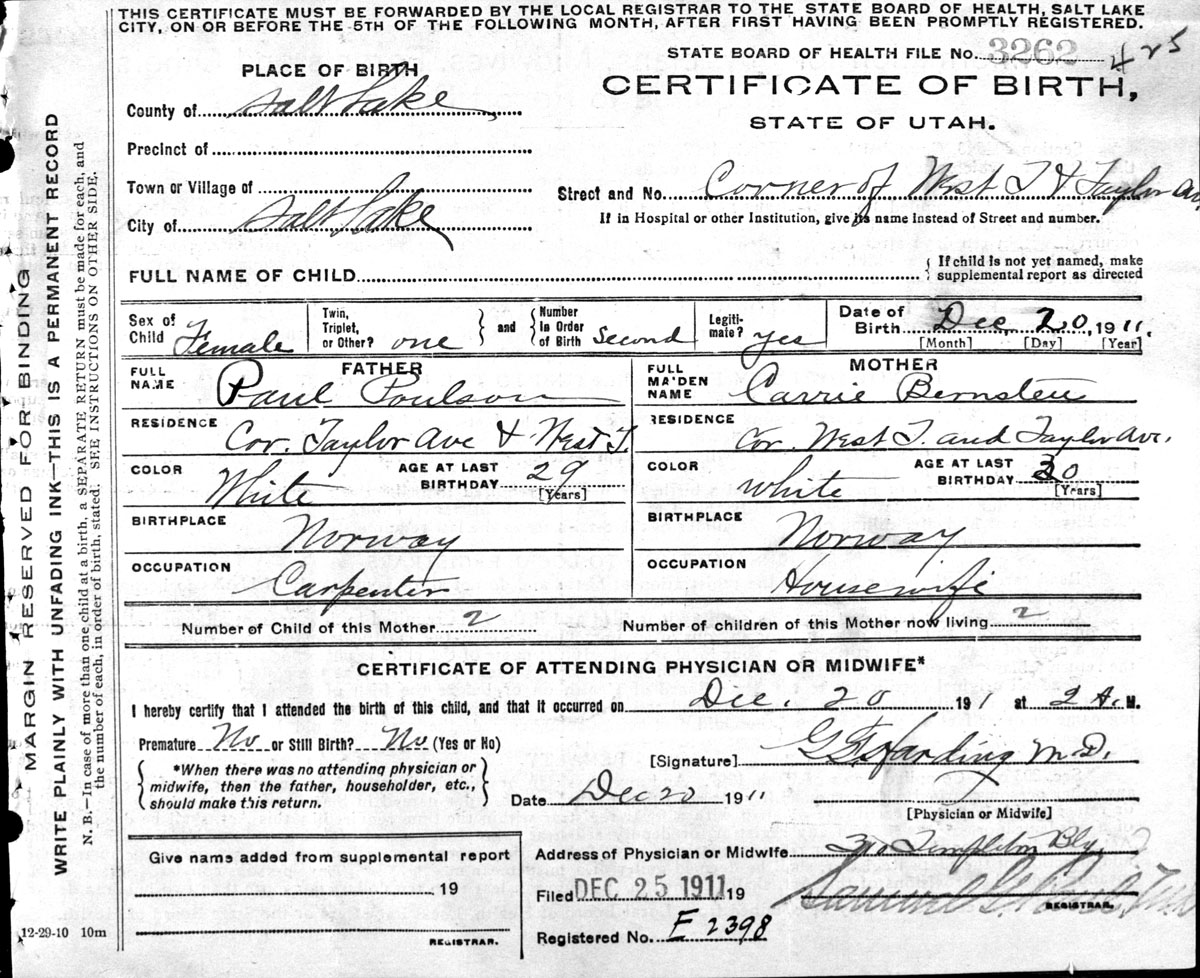 THIS CERTIFICATE MUST BE FORWARDED BY THE LOCAL REGISTRAR TO THE STATE BOARD OF HEALTH, SALT LAKE
CITY, ON OR BEFORE THE 5TH OF THE FOLLOWING MONTH, AFTER FIRST HAVING BEEN PROMPTLY REGISTERED.
STATE BOARD OF HEALTH FILE No. 3262 425
PLACE OF BIRTH
CERTIFICATE OF BIRTH,
STATE OF UTAH.
County of Salt Lake
Precinct of
Town or Village of
City of Salt Lake
Street and No. Corner of West T & Taylor Av
If in Hospital or other Institution, give its name instead of Street and number.
FULL NAME OF CHILD
{ If child is not yet named, make
supplemental report as directed
Sex of Child Female
Twin, Triplet, or Other? one } and { Number In Order of Birth Second
Legiti-mate? yes
Date of Birth Dec 20, 1911.
[Month] [Day] [Year]
FATHER
FULL NAME Paul Poulson
RESIDENCE Cor. Taylor Ave & West T.
COLOR White AGE AT LAST BIRTHDAY 29 [Years]
BIRTHPLACE Norway
OCCUPATION Carpenter
MOTHER
FULL MAIDEN NAME Carrie Bernsten
RESIDENCE Cor. West T. and Taylor Ave.
COLOR White AGE AT LAST BIRTHDAY 30 [Years]
BIRTHPLACE Norway
OCCUPATION Housewife
Number of Child of this Mother 2 Number of children of this Mother now living 2
CERTIFICATE OF ATTENDING PHYSICIAN OR MIDWIFE*
I hereby certify that I attended the birth of this child, and that it occurred on Dec. 20 191 at 2 A. M.
Premature No or Still Birth? No (Yes or No)
{ *When there was no attending physician or }
midwife, then the father, householder, etc.,
should make this return.
[Signature] G F Harding M.D.
Date Dec 20 1911
[Physician or Midwife]
Give name added from supplemental report
19
REGISTRAR.
Address of Physician or Midwife 310 Templeton Bly.
Filed DEC 25 1911 19
REGISTRAR.
Registered No. E 2398
12-29-10 10m
MARGIN RESERVED FOR BINDING
WRITE PLAINLY WITH UNFADING INK—THIS IS A PERMANENT RECORD
N. B.—In case of more than one child at a birth, a SEPARATE RETURN must be made for each, and
the number of each, in order of birth, stated. SEE INSTRUCTIONS ON OTHER SIDE.